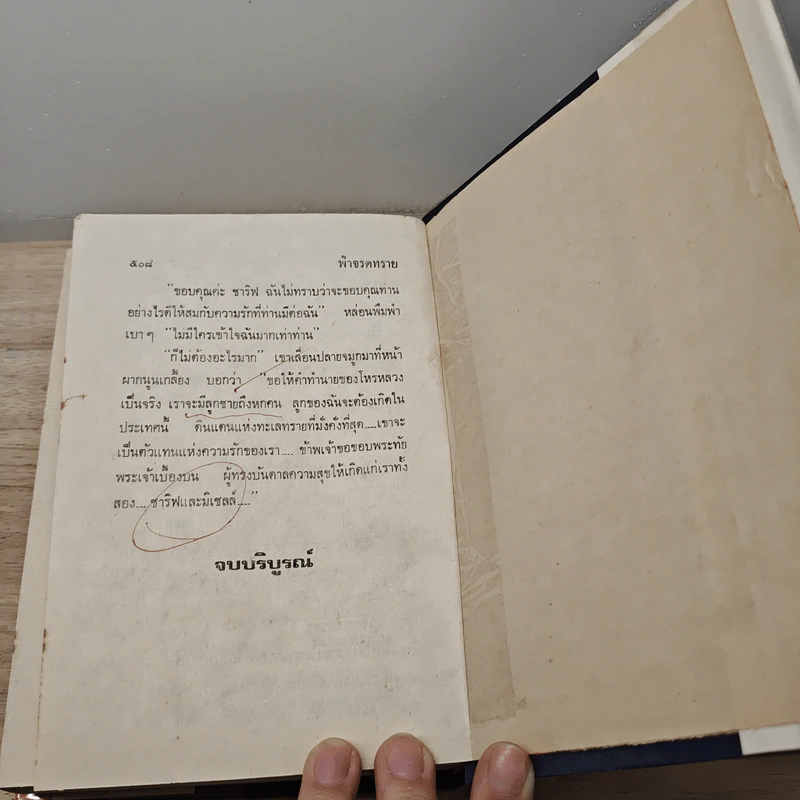 ๕๐๘
ฟ้าจรดทราย
“ขอบคุณค่ะ ชาริฟ ฉันไม่ทราบว่าจะขอบคุณท่าน
อย่างไรดีให้สมกับความรักที่ท่านมีต่อฉัน” หล่อนพึมพำ
เบา ๆ “ไม่มีใครเข้าใจฉันมากเท่าท่าน”
“ก็ไม่ต้องอะไรมาก” เขาเลื่อนปลายจมูกมาที่หน้า
ผากนูนเกลี้ยง บอกว่า “ขอให้คำทำนายของโหรหลวง
เป็นจริง เราจะมีลูกชายถึงหกคน ลูกของฉันจะต้องเกิดใน
ประเทศนี้ ดินแดนแห่งทะเลทรายที่มั่งคั่งที่สุด....เขาจะ
เป็นตัวแทนแห่งความรักของเรา.... ข้าพเจ้าขอขอบพระทัย
พระเจ้าเบื้องบน ผู้ทรงบันดาลความสุขให้เกิดแก่เราทั้ง
สอง....ชาริฟและมิเชลล์....”
จบบริบูรณ์